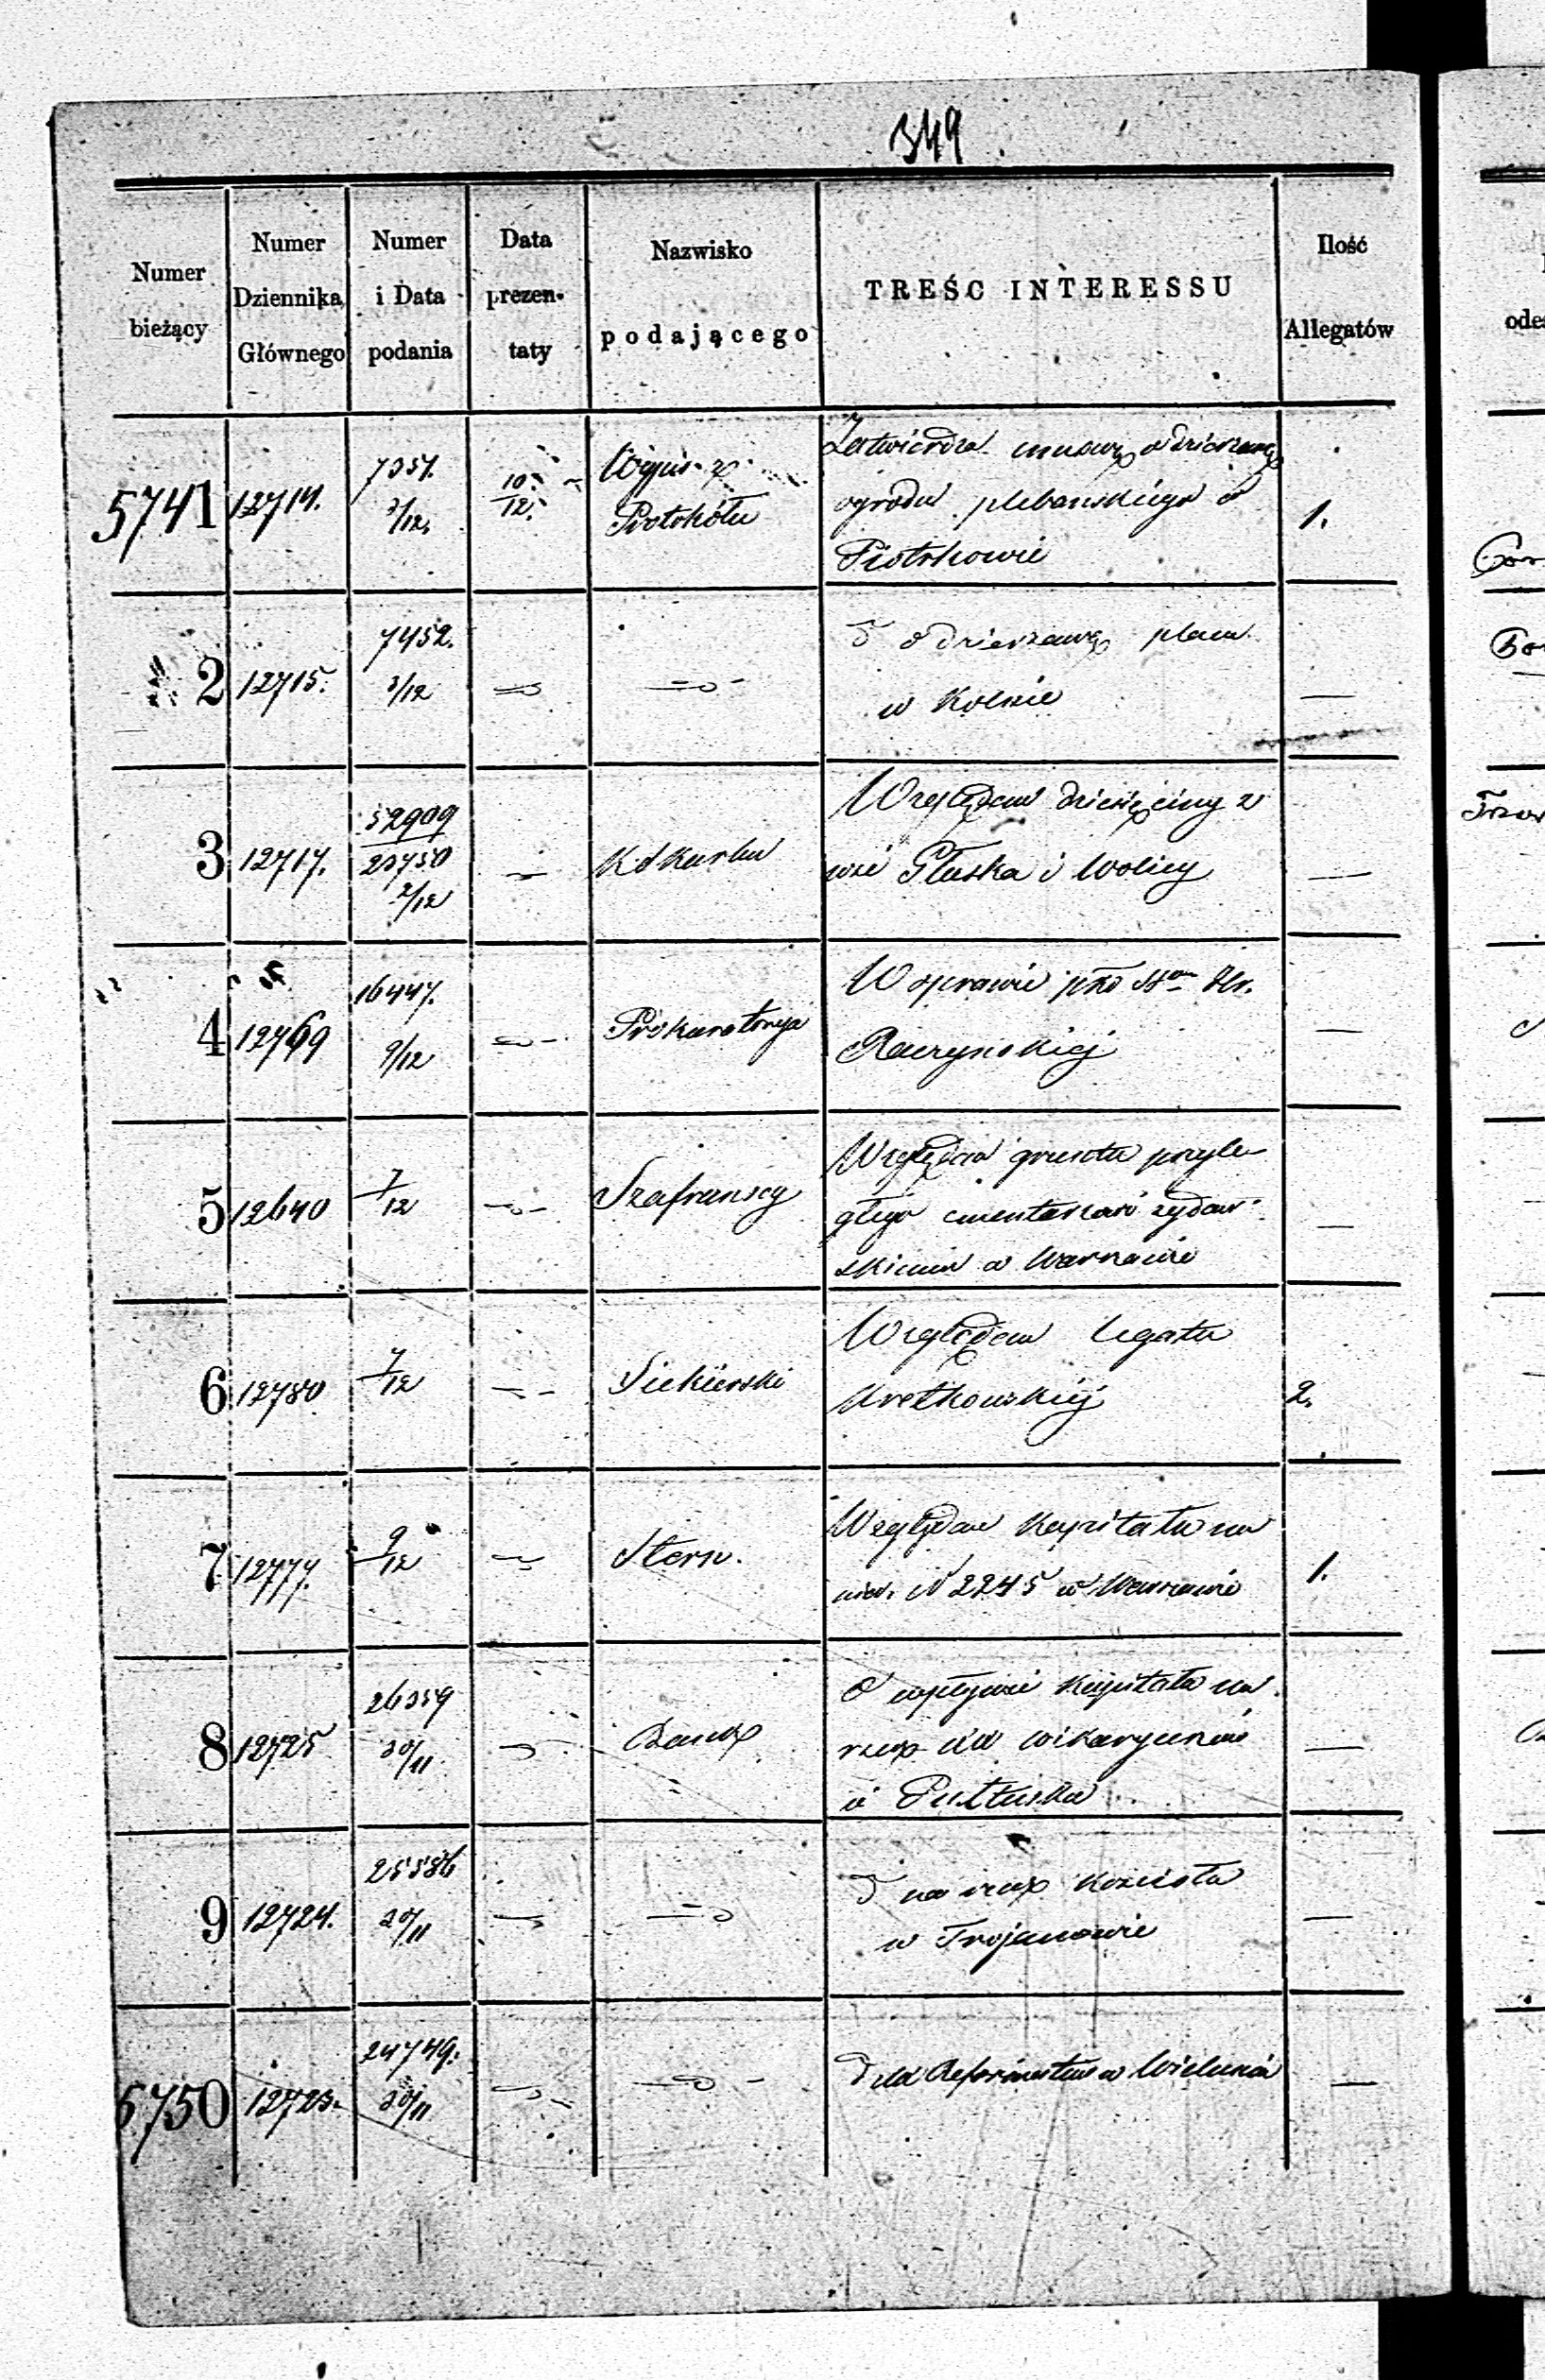 349
Numer bieżący
Numer Dziennika Głównego
Numer i Data podania
Data prezen-taty
Nazwisko podającego
TREŚC INTERESSU
Ilość Allegatów
5741 12714. 7351. 3/12. 10/12. Wypis z Protokółu
Zatwierdza umowę o dzierżawę
ogrodu plebańskiego w
Piotrkowie
1.
2 12715. 7452. 3/12
o dzierżawę placu
w Kolnie —
3 12717. 52909 / 23750 2/12 K d Skarbu
Względem dziesięciny z
wsi Głuska i Wolicy —
4 12769 16447. 9/12 Prokuratorya
W sprawie
Raczyńskiej —
5 12640 7/12 Szafrańscy
Względem gruntu przyle-
głego cmentarzowi żydow-
skiemu w Warszawie —
6 12780 7/12 Siekierski
Względem legatu
Kretkowskiej 2.
7 12777. 9/12 Stern.
Względem Kapitału na
nier. N 2245 w Warszawie 1.
8 12725 26359 30/11 Bank
O wpływie Kapitału na
rzecz wikaryuszów
w Pułtusku —
9 12724. 25586 20/11
na rzecz Kościoła
w Trojanowie —
5750 12723. 24749. 30/11
Reformatów w Wieluniu —